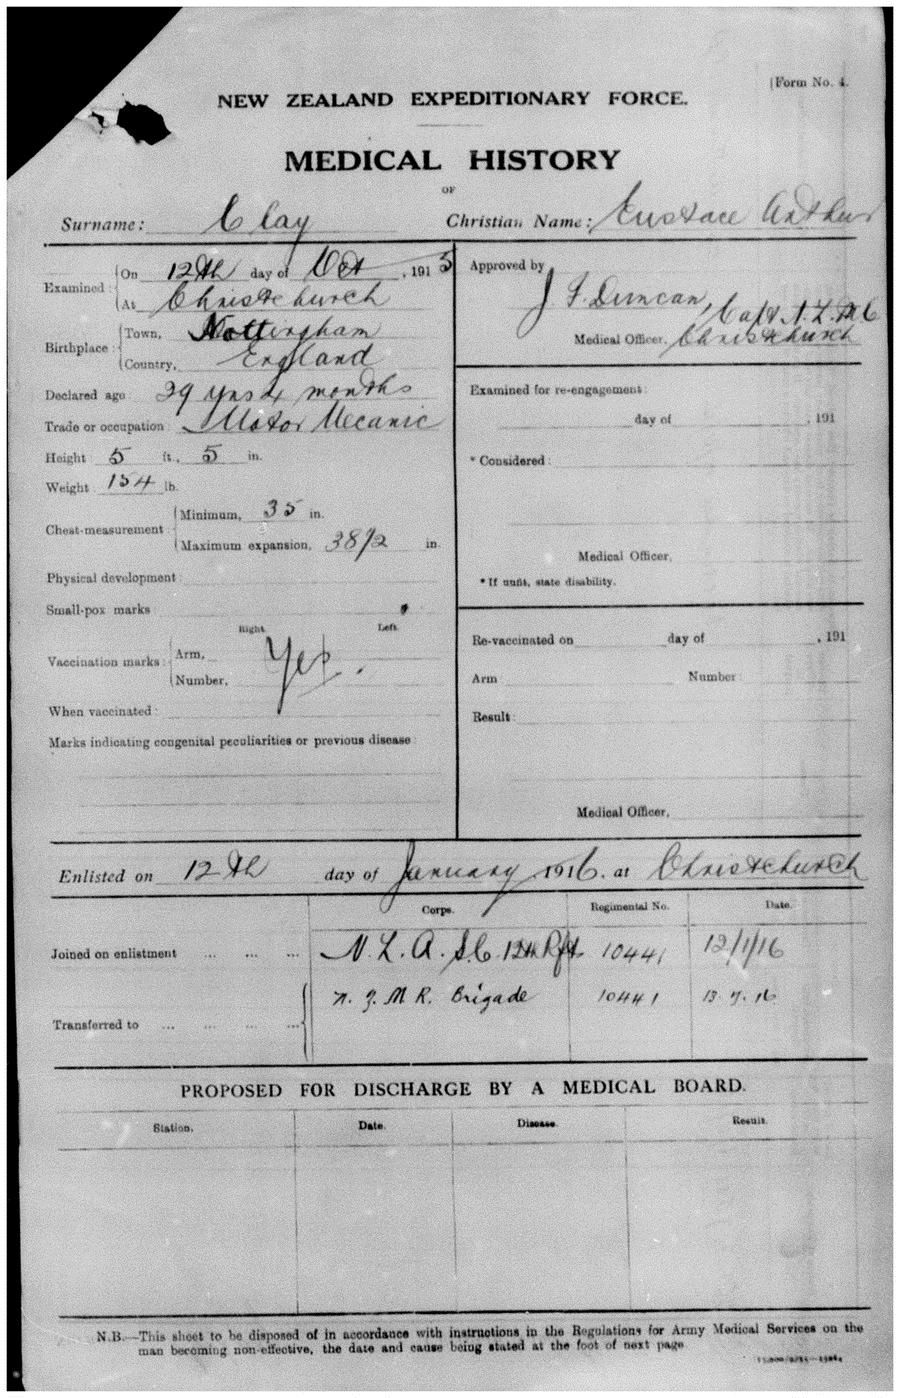 Form No. 4.
NEW ZEALAND EXPEDITIONARY FORCE.
MEDICAL HISTORY
OF
Surname: Clay Christian Name: Eustace Arthur
Examined: On 12th day of Oct, 1915
At Christchurch
Birthplace: Town, Nottingham
Country, England
Declared age 29 yrs 4 months
Trade or occupation: Motor Mecanic
Height 5 ft., 5 in.
Weight 154 lb.
Chest-measurement: Minimum, 35 in.
Maximum expansion, 38 1/2 in.
Physical development:
Small-pox marks
Right. Left.
Vaccination marks: Arm, Yes
Number,
When vaccinated:
Marks indicating congenital peculiarities or previous disease:
Approved by
J F Duncan, Capt N.Z.M.C
Medical Officer. Christchurch
Examined for re-engagement:
day of , 191
* Considered:
Medical Officer.
* If unfit, state disability.
Re-vaccinated on day of , 191
Arm Number:
Result:
Medical Officer.
Enlisted on 12th day of January, 1916. at Christchurch
Corps. Regimental No. Date.
Joined on enlistment ... ... ... N. Z. A. S.C. 12th Rft 10441 12/1/16
Transferred to ... ... ... ... N. Z. M R. Brigade 10441 13.7.16
PROPOSED FOR DISCHARGE BY A MEDICAL BOARD.
Station. Date. Disease. Result.
N.B.—This sheet to be disposed of in accordance with instructions in the Regulations for Army Medical Services on the
man becoming non-effective, the date and cause being stated at the foot of next page